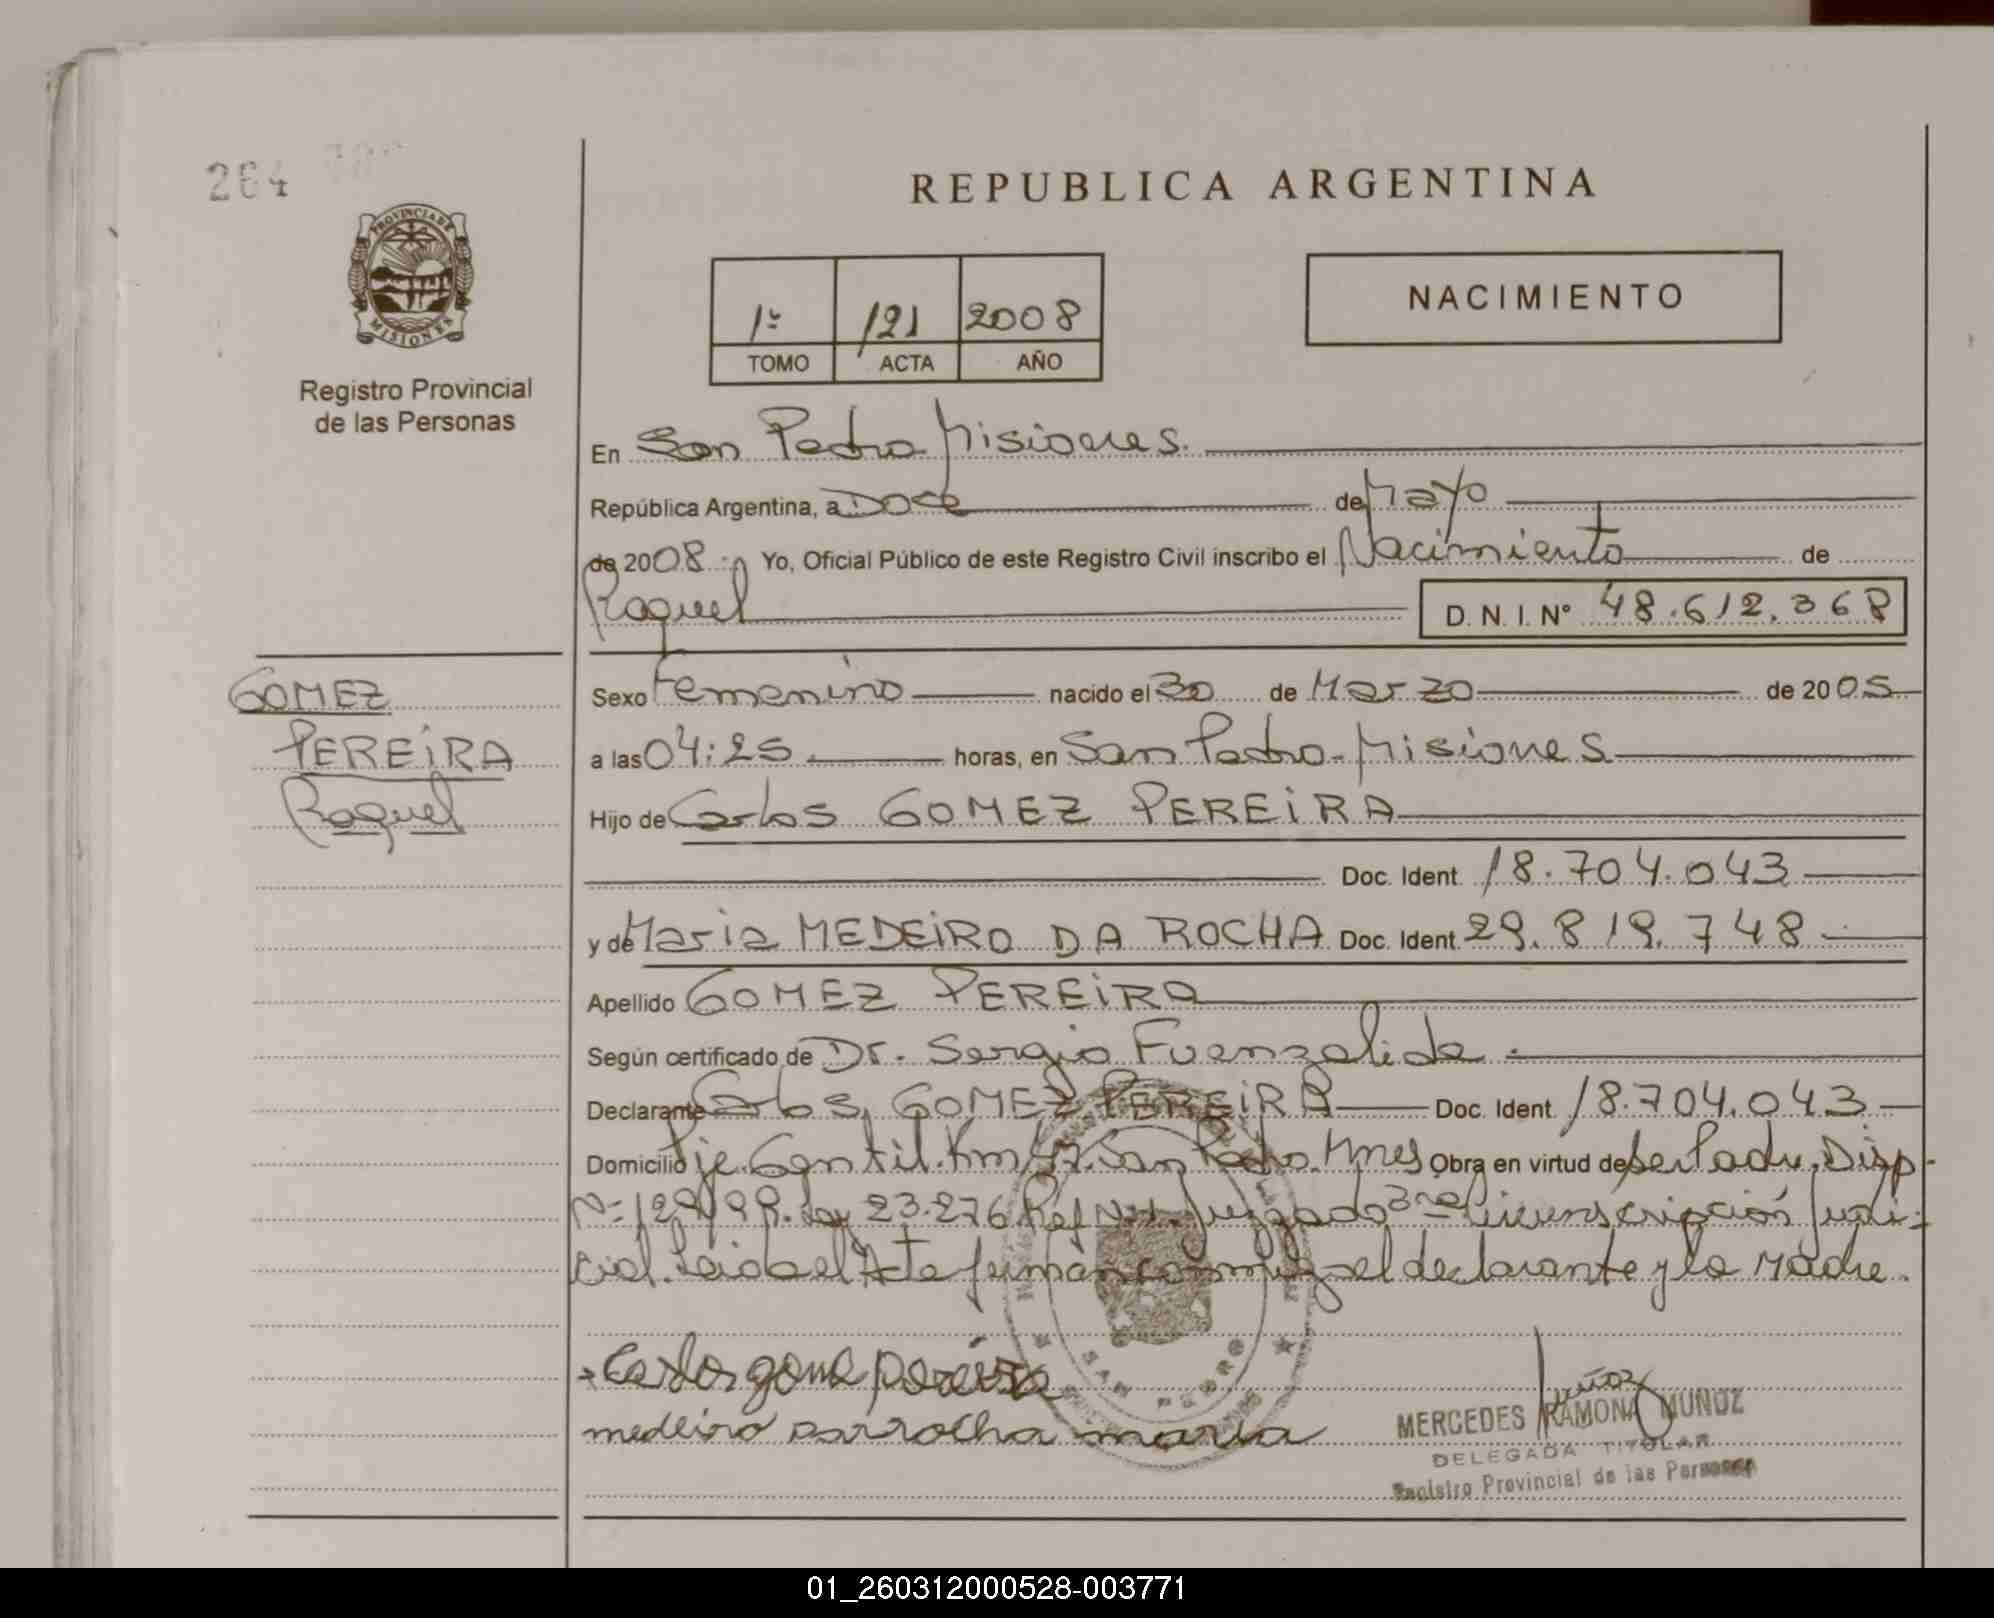 264
REPUBLICA ARGENTINA
PROVINCIA DE
MISIONES
Registro Provincial
de las Personas
1º 121 2008
TOMO ACTA AÑO
NACIMIENTO
En San Pedro Misiones.
República Argentina, a Doce de Mayo
de 2008 Yo, Oficial Público de este Registro Civil inscribo el Nacimiento de
Raquel D. N. I. Nº 48.612.368
GOMEZ
PEREIRA
Raquel
Sexo Femenino nacido el 30 de Marzo de 2005
a las 04:25 horas, en San Pedro-Misiones
Hijo de Carlos GOMEZ PEREIRA
Doc. Ident. 18.704.043
y de Maria MEDEIRO DA ROCHA Doc. Ident. 29.819.748
Apellido GOMEZ PEREIRA
Según certificado de Dr. Sergio Fuenzalida.
Declarante Carlos GOMEZ PEREIRA Doc. Ident. 18.704.043
Domicilio Pje. Gentil. Km 47. San Pedro. Mnes Obra en virtud de ser Padre, Disp.
Nº 129/99. Ley 23.276 Juzgado 3ra Circunscripción Judi-
cial. Leida el Acta firman conmigo el declarante y la Madre.
SAN PEDRO
Carlos gome pereira
medeiro darrocha maria
Muñoz
MERCEDES RAMONA MUNOZ
DELEGADA TITULAR
Registro Provincial de las Personas
01_260312000528-003771